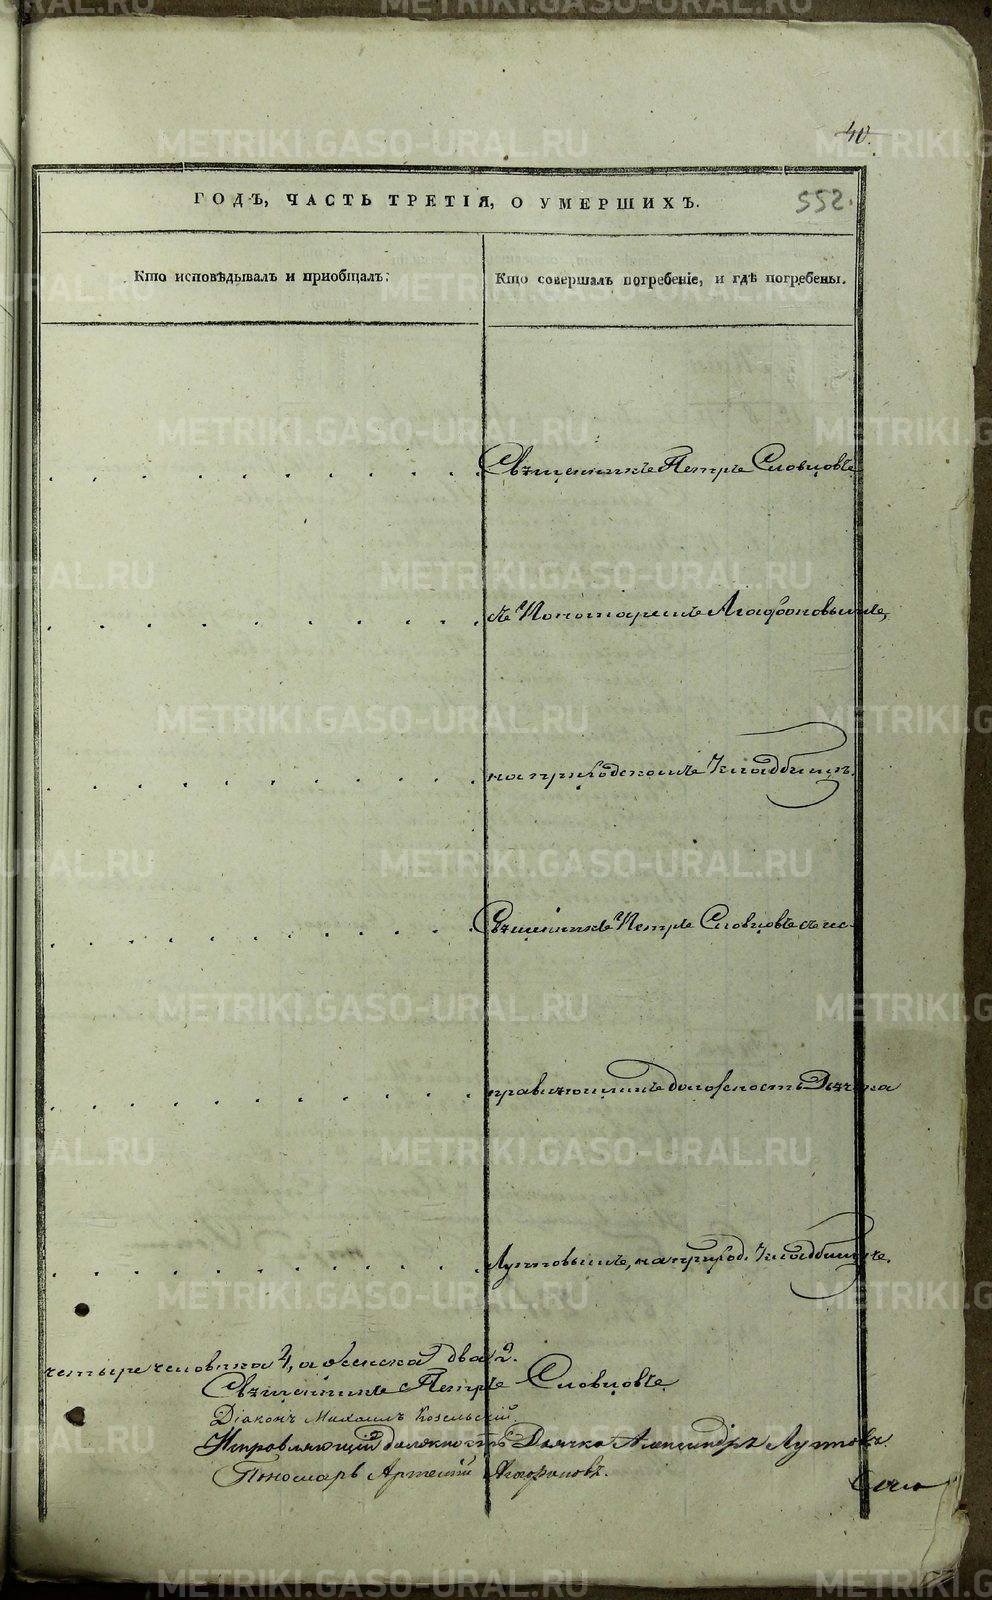 40.
ГОДЪ, ЧАСТЬ ТРЕТІЯ, О УМЕРШИХЪ.
552.
Кто исповѣдывалъ и приобщалъ:
Кто совершалъ погребеніе, и гдѣ погребены.
Священникъ Петръ Словцовъ
съ Пономаремъ Агафоновымъ,
на приходскомъ кладбищѣ.
Священникъ Петръ Словцовъ съ ис-
правляющимъ должность Дьячка
Луптовымъ, на приход. кладбищѣ.
четыре человека 4, а женска два 2.
Священникъ Петръ Словцовъ
Діаконъ Михаилъ Козельскій
Исправляющій должность Дьячка Александръ Луптовъ
Пономарь Артемій Агафоновъ.
METRIKI.GASO-URAL.RU